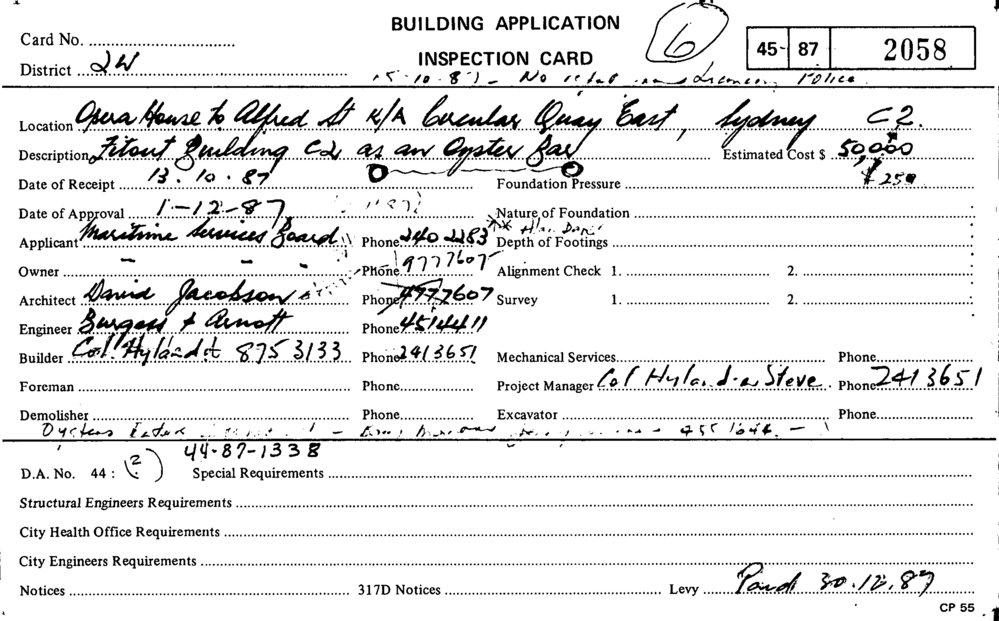 BUILDING APPLICATION
INSPECTION CARD
6
45- 87 2058
Card No.
District 2W
15-10-87 - No Police
Location Opera House to Alfred St K/A Circular Quay East, Sydney C2.
Description Fitout Building C2 as an Oyster Bar Estimated Cost $ 50,000
Date of Receipt 13.10.87 Foundation Pressure $250
Date of Approval 1-12-87 Nature of Foundation
Applicant Maritime Services Board Phone 240 2283 Depth of Footings
Owner – – – Phone 9777607 Alignment Check 1. 2.
Architect David Jacobson Phone 4977607 Survey 1. 2.
Engineer Burgess & Arnott Phone 4514411
Builder Col. Hyland 875 3133 Phone 2413651 Mechanical Services Phone
Foreman Phone Project Manager Col Hyland Steve Phone 2413651
Demolisher Phone Excavator Phone
Oysters
D.A. No. 44 : (2) 44-87-1338 Special Requirements
Structural Engineers Requirements
City Health Office Requirements
City Engineers Requirements
Notices 317D Notices Levy Paid 30.12.87
CP 55